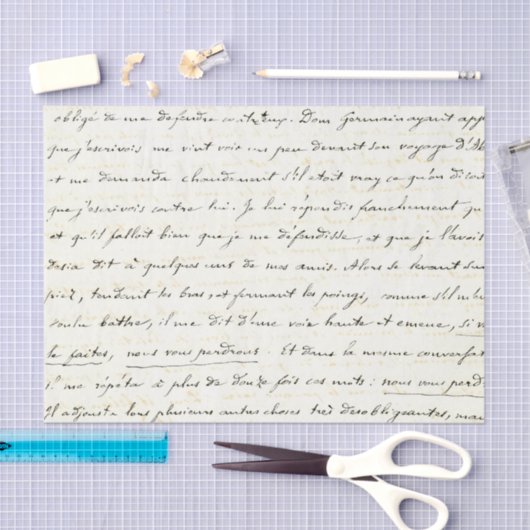 obligé de me defendre contr'eux. Dom Germain ayant app
que j'escrivois me vint voir un peu devant son voyage d'Al
et me demanda chaudement s'il etoit vray ce qu'on disoit
que j'escrivois contre lui. Je lui répondis franchement qu
et qu'il falloit bien que je me défendisse, et que je l'avois
desia dit à quelques uns de mes amis. Alors se levant sur
piez, tendant les bras, et formant les poings, comme s'il m'eu
voulu battre, il me dit d'une voix haute et emeue, si v
le faites, nous vous perdrons. Et dans la mesme conversat
il me répéta à plus de douze fois ces mots: nous vous perd
Il adjousta tous plusieurs autres choses tres desobligeantes, mau